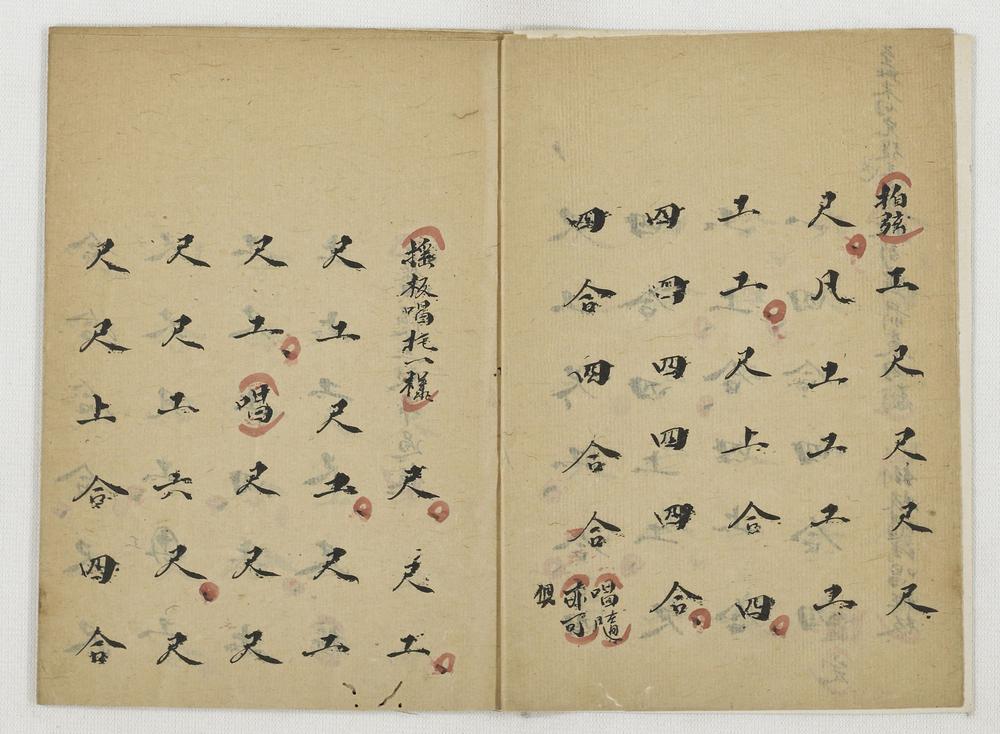 拍弦工尺尺尺尺
尺凡工工工工
工工尺上合四
四四四四四合
四合四合合唱隨
亦可
俱
搖板唱托一樣尺尺工
尺工尺工尺工
尺工唱尺尺尺
尺尺工六尺尺
尺尺上合四合